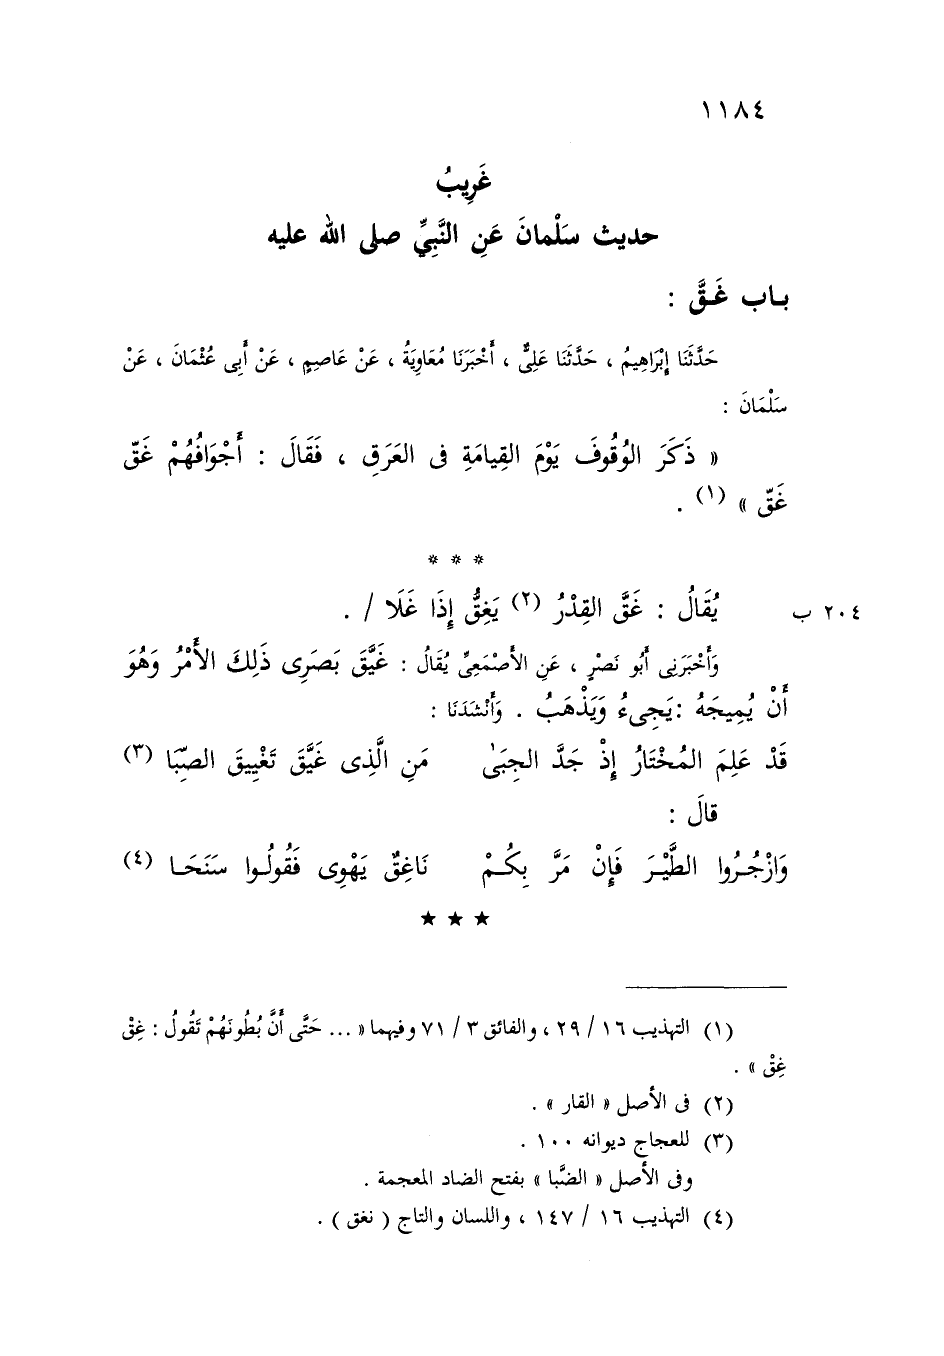 ١١٨٤
غَرِيبُ
حديث سَلْمانَ عَنِ النَّبِيِّ صلى الله عليه
بـاب غَـقَّ :
حَدَّثَنَا إِبْرَاهِيمُ ، حَدَّثَنَا عَلِىٌّ ، أَخْبَرَنَا مُعَاوِيَةُ ، عَنْ عَاصِمٍ ، عَنْ أَبِى عُثْمَانَ ، عَنْ
سَلْمَانَ :
« ذَكَرَ الوُقُوفَ يَوْمَ القِيامَةِ فى العَرَقِ ، فَقَالَ : أَجْوَافُهُمْ غَقّ
غَقّ » (١) .
* * *
يُقَالُ : غَقَّ القِدْرُ (٢) يَغِقُّ إِذَا غَلَا / . ٢٠٤ ب
وَأَخْبَرَنِى أَبُو نَصْرٍ ، عَنِ الأَصْمَعِىِّ يُقَالُ : غَيَّقَ بَصَرِى ذَلِكَ الأَمْرُ وَهُوَ
أَنْ يُمِيجَهُ :يَجِىءُ وَيَذْهَبُ . وَأَنْشَدَنَا :
قَدْ عَلِمَ المُخْتَارُ إِذْ جَدَّ الجِبَىٰ مَنِ الَّذِى غَيَّقَ تَغْيِيقَ الصِّبَا (٣)
قالَ :
وَازْجُـرُوا الطَّيْـرَ فَإِنْ مَرَّ بِكُـمْ نَاغِقٌ يَهْوِى فَقُولُـوا سَنَحَـا (٤)
★ ★ ★
(١) التهذيب ١٦ / ٢٩ ، والفائق ٣ / ٧١ وفيهما « ... حَتَّى أَنَّ بُطُونَهُمْ تَقُولُ : غِقْ
غِقْ » .
(٢) فى الأصل « القار » .
(٣) للعجاج ديوانه ١٠٠ .
وفى الأصل « الضَّبا » بفتح الضاد المعجمة .
(٤) التهذيب ١٦ / ١٤٧ ، واللسان والتاج ( نغق ) .